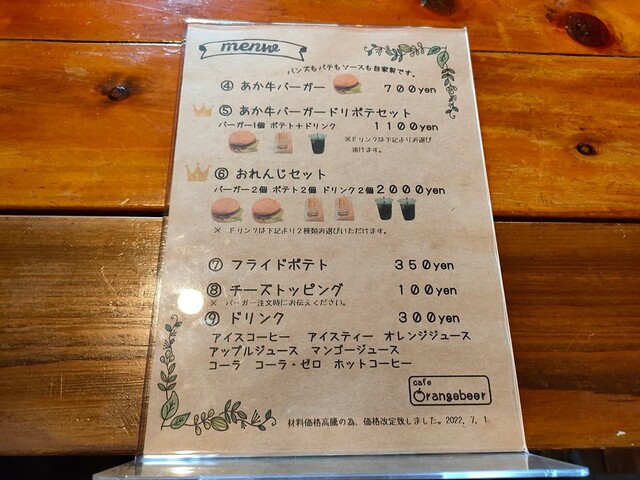 menu
バンズもパテもソースも自家製です。
④ あか牛バーガー 700yen
⑤ あか牛バーガードリポテセット
バーガー1個 ポテト+ドリンク 1100yen
※ドリンクは下記よりお選び
頂けます。
⑥ おれんじセット
バーガー2個 ポテト2個 ドリンク2個 2000yen
※ ドリンクは下記より2種類お選びいただけます。
⑦ フライドポテト 350yen
⑧ チーズトッピング 100yen
※ バーガー注文時にお伝えください。
⑨ ドリンク 300yen
アイスコーヒー アイスティー オレンジジュース
アップルジュース マンゴージュース
コーラ コーラ・ゼロ ホットコーヒー
cafe
Orangebeer
材料価格高騰の為、価格改定致しました。2022.7.1